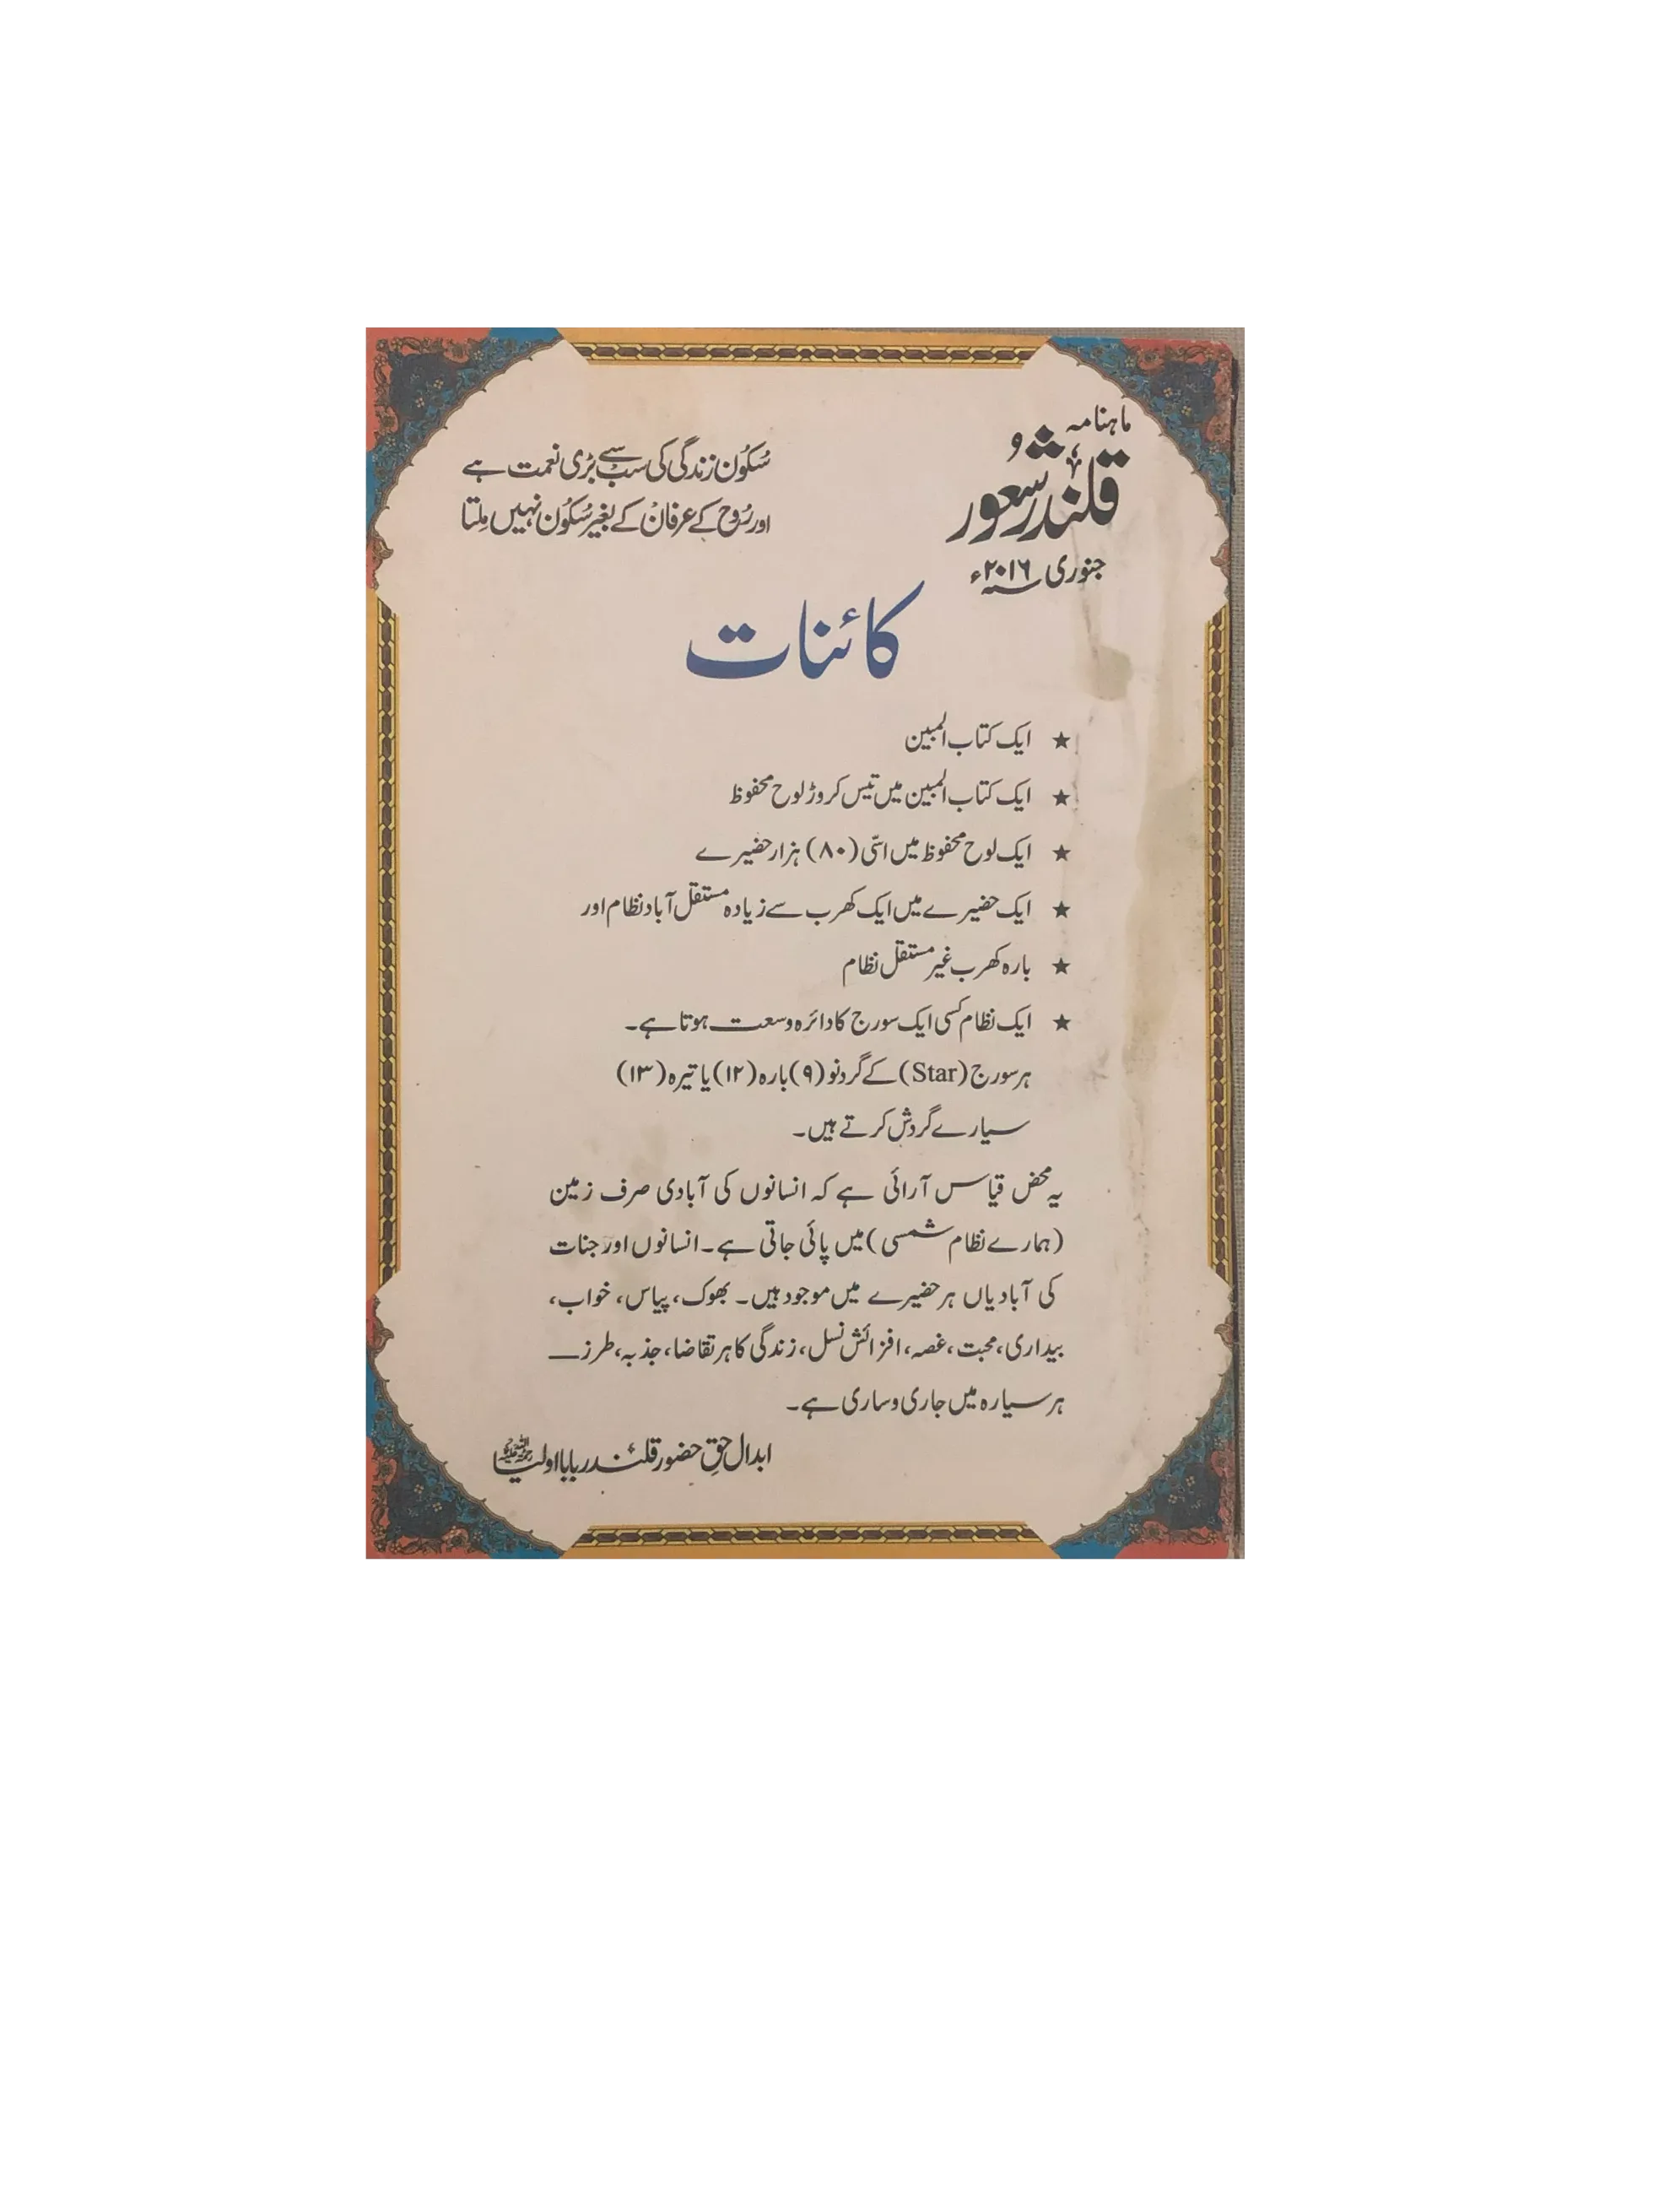 ماہنامہ
قلندر شعور
جنوری ۲۰۱۶ء
سُکوُن زندگی کی سب سے بڑی نعمت ہے
اور رُوح کے عرفان کے بغیر سُکوُن نہیں مِلتا
کائنات
★ ایک کتاب المبین
★ ایک کتاب المبین میں تیس کروڑ لوح محفوظ
★ ایک لوح محفوظ میں اسّی (۸۰) ہزار حضیرے
★ ایک حضیرے میں ایک کھرب سے زیادہ مستقل آباد نظام اور
★ بارہ کھرب غیر مستقل نظام
★ ایک نظام کسی ایک سورج کا دائرہ وسعت ہوتا ہے۔
ہر سورج (Star) کے گرد نو (۹) بارہ (۱۲) یا تیرہ (۱۳)
سیارے گردش کرتے ہیں۔
یہ محض قیاس آرائی ہے کہ انسانوں کی آبادی صرف زمین
(ہمارے نظام شمسی) میں پائی جاتی ہے۔ انسانوں اور جنات
کی آبادیاں ہر حضیرے میں موجود ہیں۔ بھوک، پیاس، خواب،
بیداری، محبت، غصہ، افزائش نسل، زندگی کا ہر تقاضا، جذبہ، طرز —
ہر سیارہ میں جاری و ساری ہے۔
ابدال حق حضور قلندر بابا اولیاءؒ